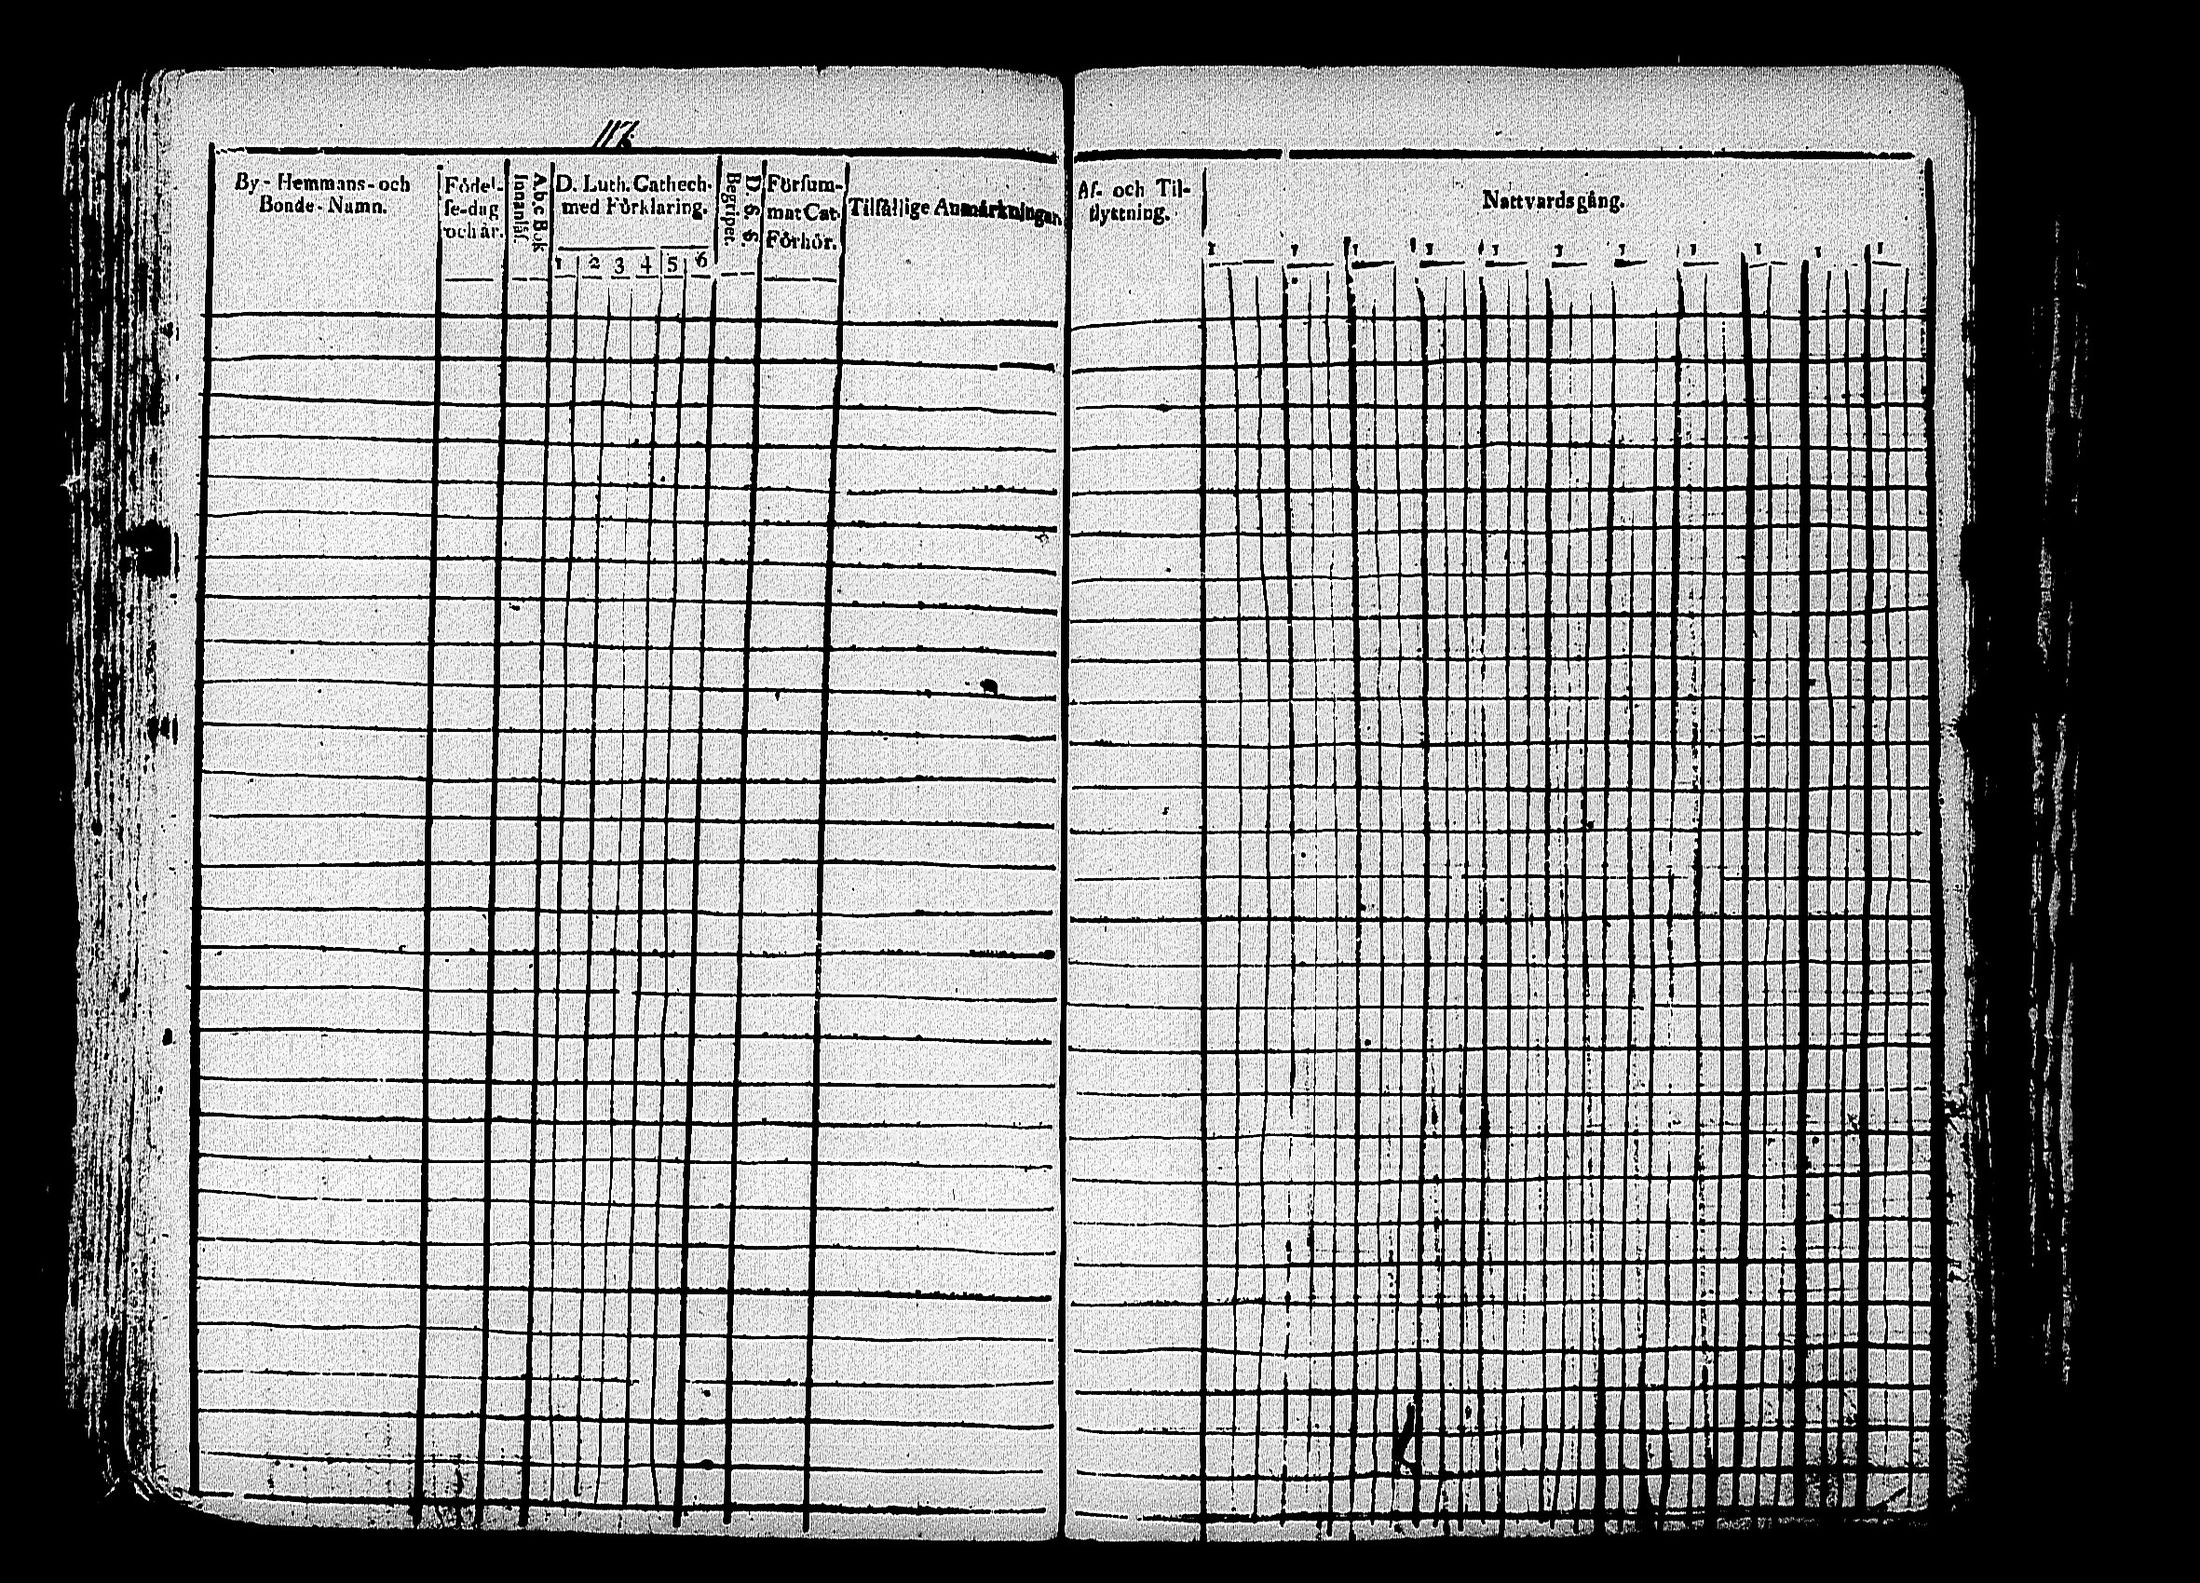 By - Hemmans - och
Bonde - Namn.
Födel-
se-dag
och år.
A.b.c Bok
Innanläs.
D. Luth. Cathech.
med Förklaring.
1 2 3 4 5 6
Begripet.
Försum-
mat Cat.
Förhör.
Tilfällige Anmärkningar
Af- och Til-
flyttning.
Nattvardsgång.
1 1 1 1 1 1 1 1 1 1 1